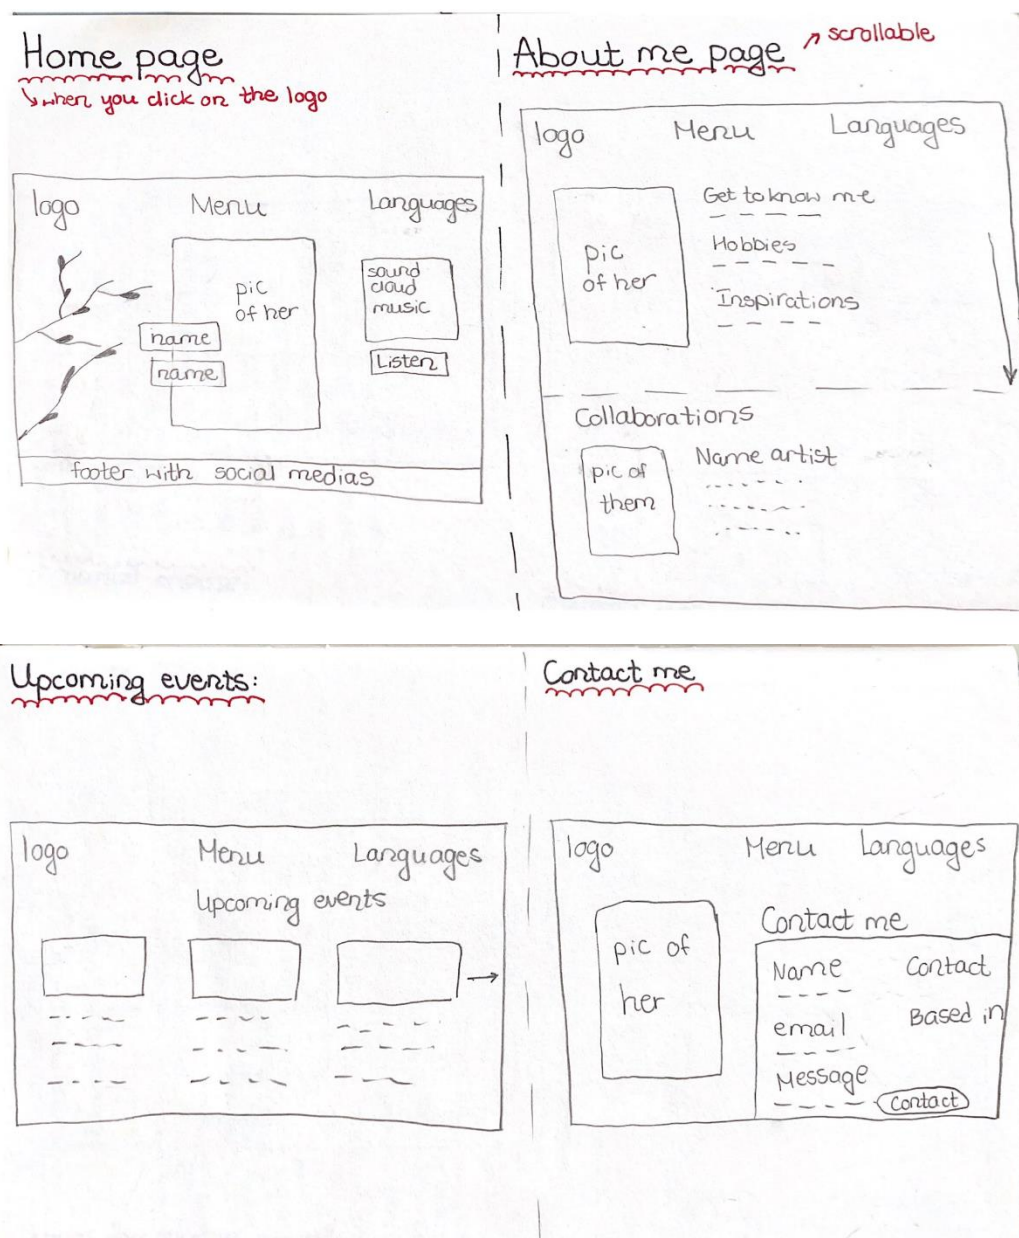 Home page
when you click on the logo
logo Menu Languages
pic
of her
sound
cloud
music
name
name
Listen
footer with social medias
About me page
scrollable
logo Menu Languages
pic
of her
Get to know me
Hobbies
Inspirations
Collaborations
pic of
them
Name artist
Upcoming events:
logo Menu Languages
Upcoming events
Contact me
logo Menu Languages
pic of
her
Contact me
Name Contact
Based in
email
Message
Contact